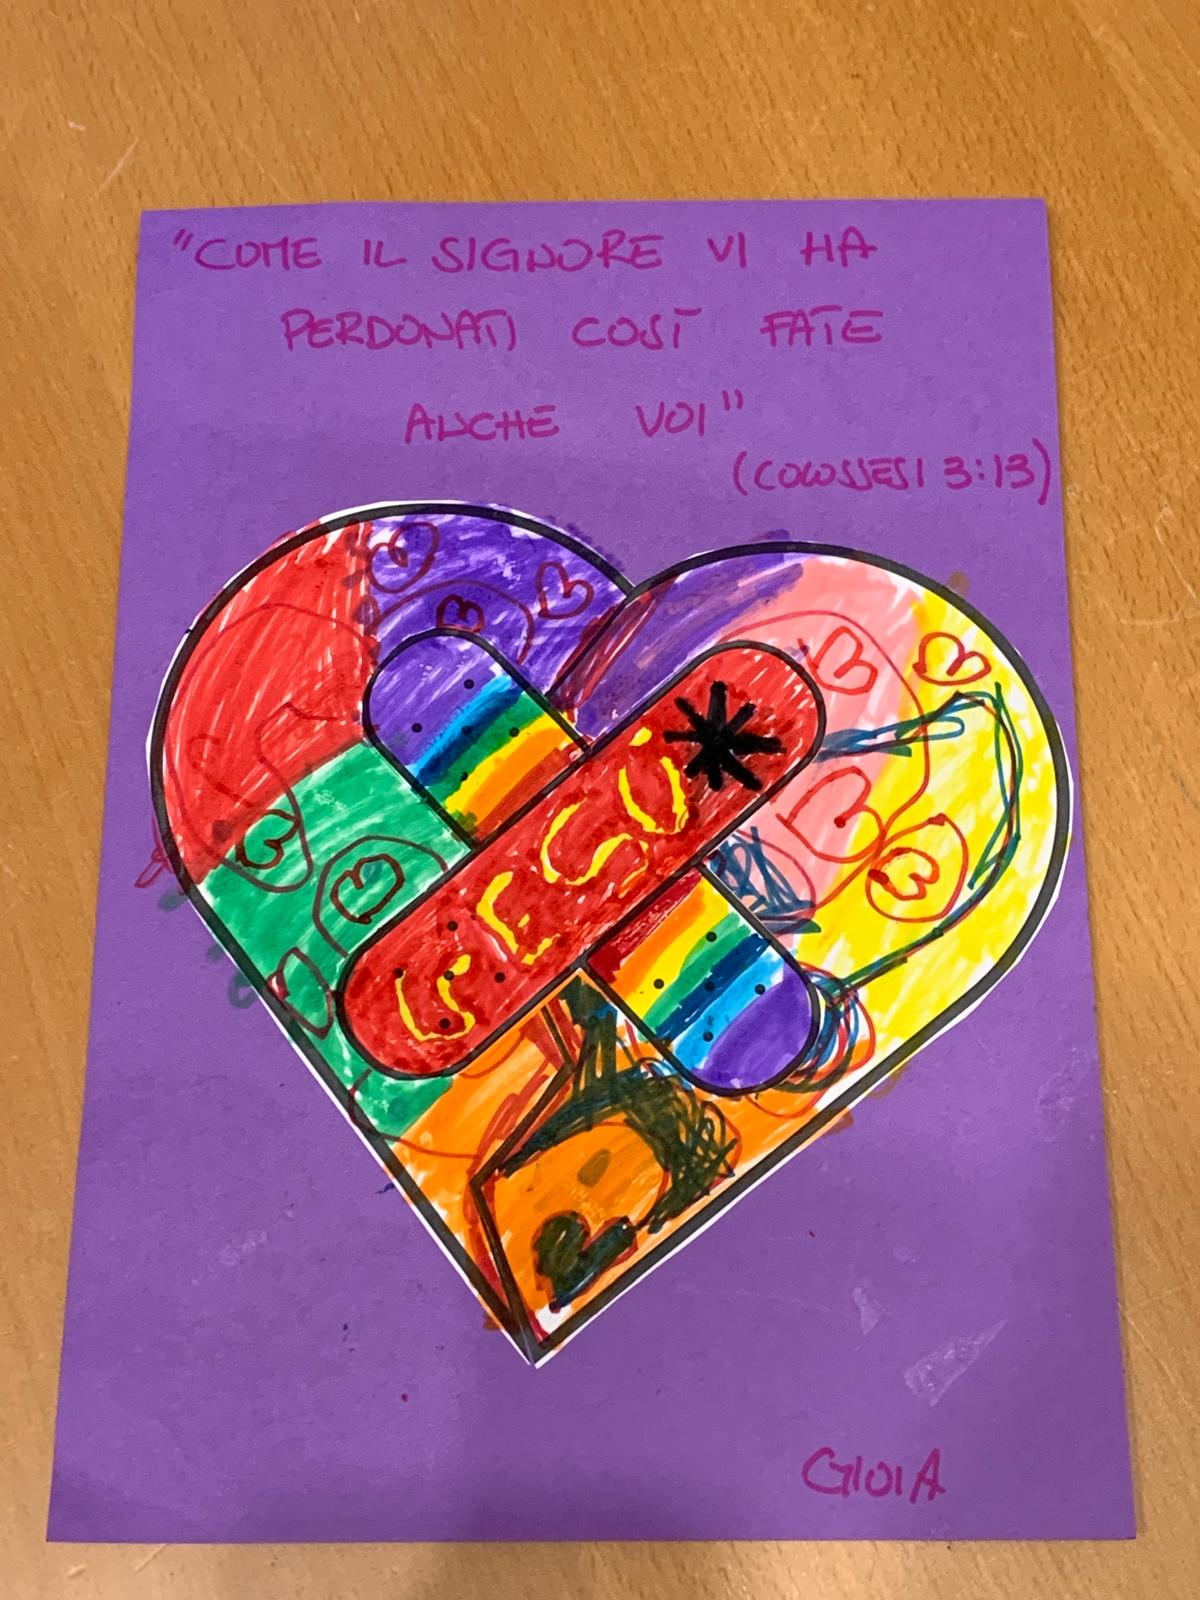 "COME IL SIGNORE VI HA
PERDONATI COSÌ FATE
ANCHE VOI"
(COLOSSESI 3:13)
GIOIA